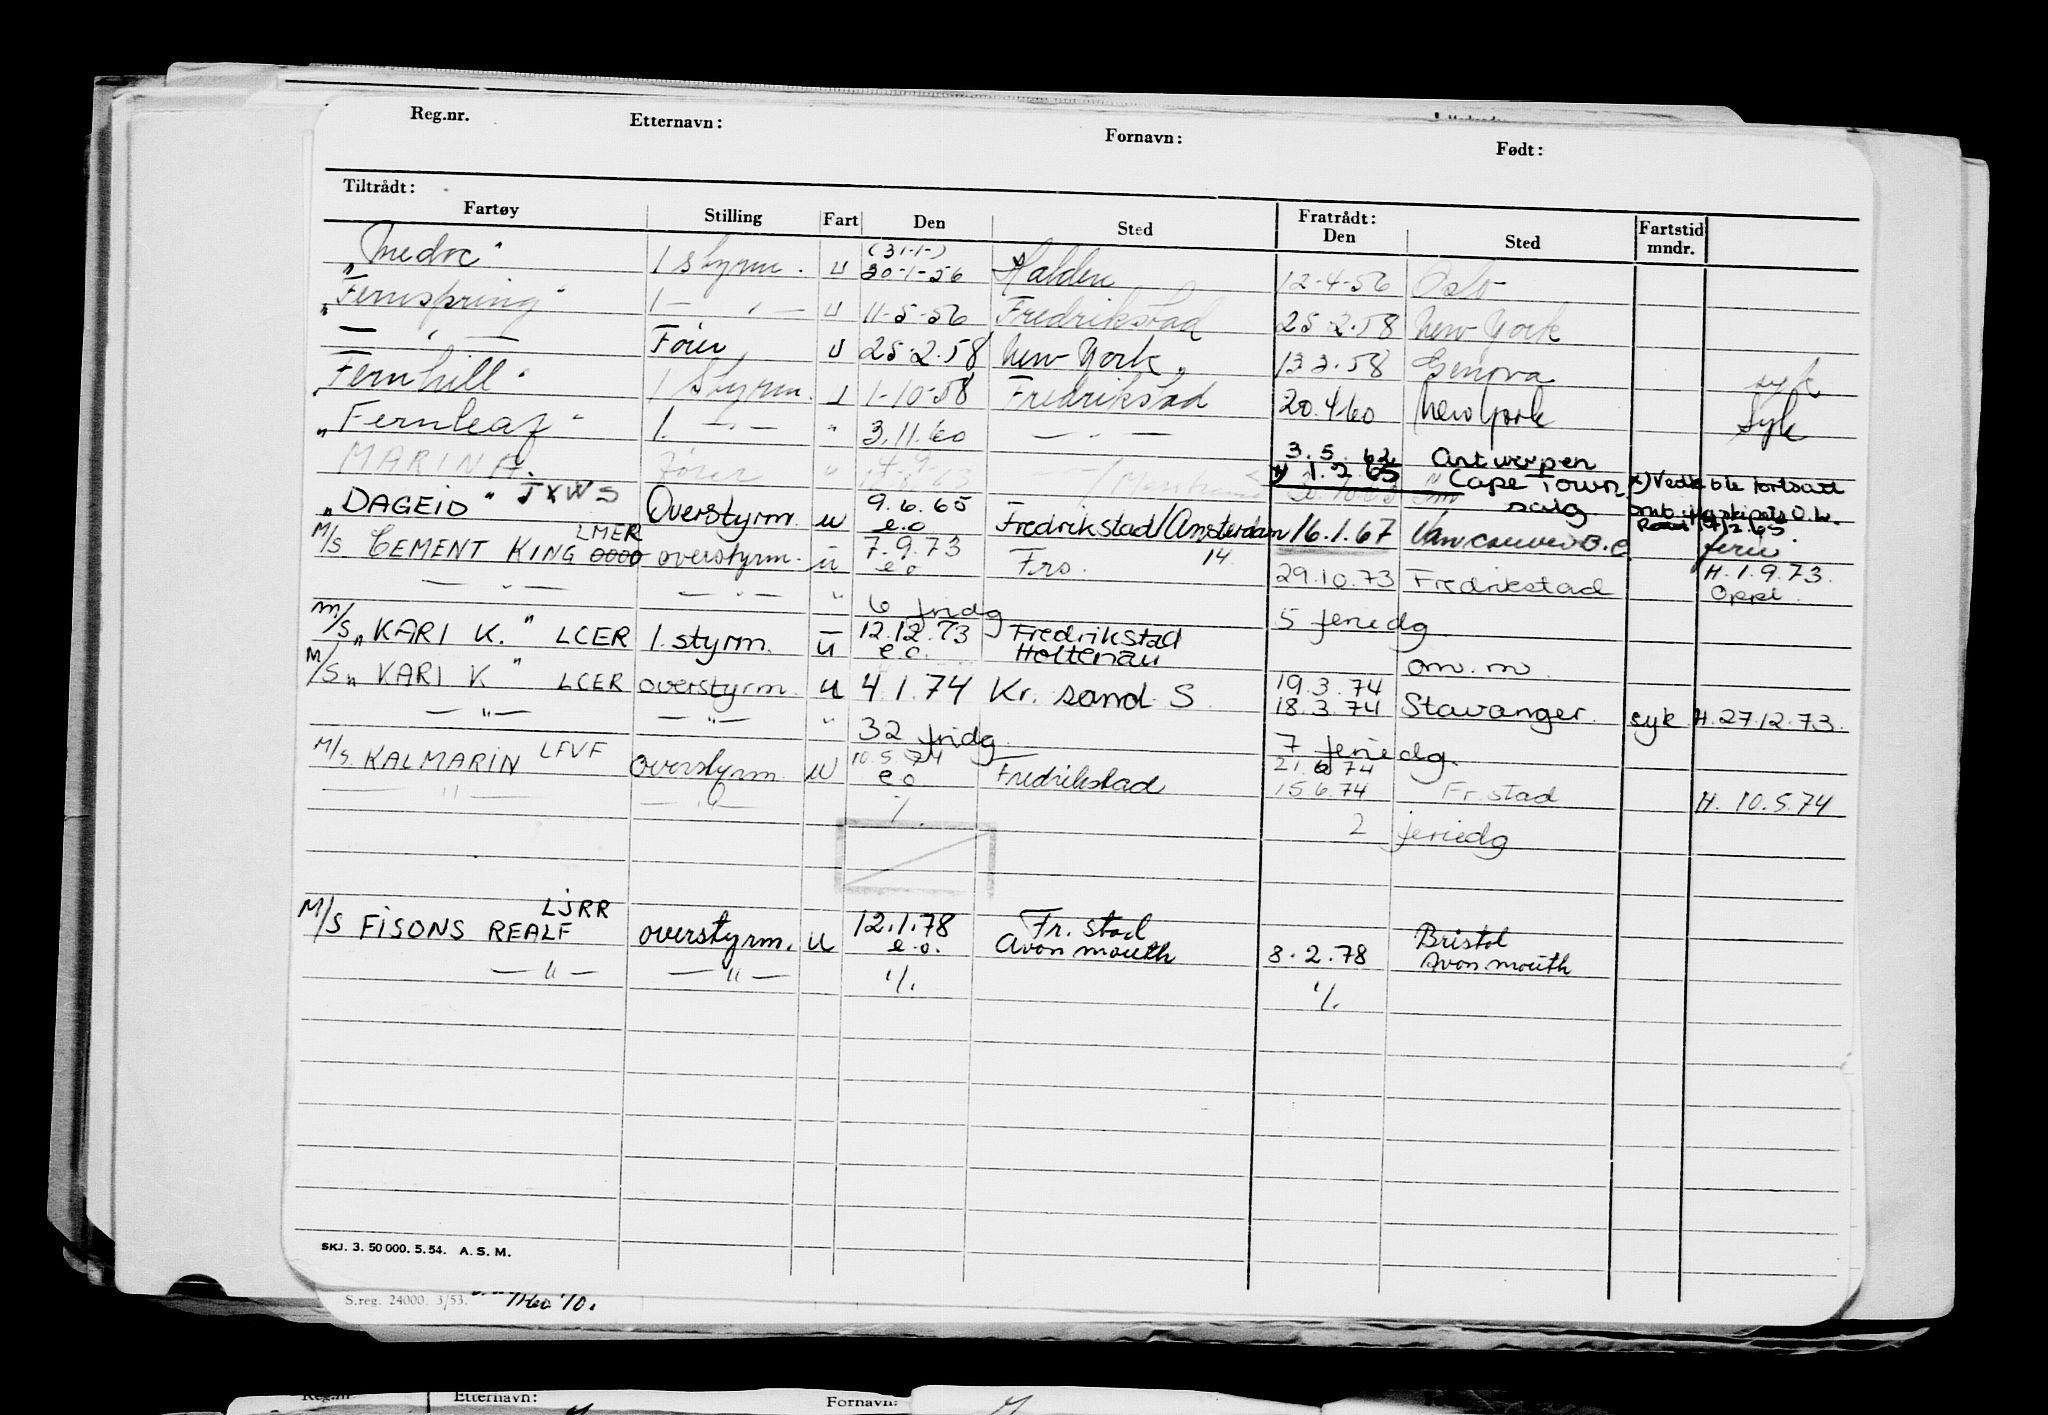 Reg.nr. Etternavn: Fornavn: Født:
Tiltrådt: Fratrådt:
Fartøy Stilling Fart Den Sted Den Sted Fartstid mndr.
(31-1-)
"Medoc" 1 styrm. u 30-1-56 Halden 12-4-56 Oslo
"Fernspring" 1 — " — u 11-5-56 Fredrikstad 25.2.58 New York
— " — Fører u 25.2.58 New York 13.3.58 Genova syk
"Fernhill" 1 Styrm. u 1-10-58 Fredrikstad 20.4.60 New York Syk
"Fernleaf" 1. — " — " 3.11.60 — " — 3.5.62 Antwerpen
MARINA Fører " x) 1.2.65 Cape Town x) Vedk ble fortsatt
salg
"DAGEID" JXWS Overstyrm. u 9.6.65 Fredrikstad/Amsterdam 16.1.67 Vancouver B.C. ferie
e.o
M/S CEMENT KING LMER 0000 overstyrm. u 7.9.73 Frs. 14. 29.10.73 Fredrikstad H. 1.9.73.
e.o Oppl.
— " — — " — " 6 fridg 5 feriedg
M/S "KARI K." LCER 1. styrm. u 12.12.73 Fredrikstad
e.o. Holtenau om. m.
M/S "KARI K" LCER overstyrm. u 4.1.74 Kr. sand S. 19.3.74
18.3.74 Stavanger. syk H. 27.12.73.
— " — — " — " 32 fridg. 7 feriedg.
M/S. KALMARIN LFVF overstyrm. u 10.5.74 Fredrikstad 21.6.74
e.o 15.6.74 Fr.stad H. 10.5.74
— " — — " — ·/. 2 feriedg
LJRR
M/S FISONS REALF overstyrm. u 12.1.78 Fr. stad Bristol
e.o. Avonmouth 8.2.78 Avonmouth
— " — — " — ·/. ·/.
SKJ. 3. 50 000. 5. 54. A. S. M.
S.reg. 24000. 3/53.
Reg.nr Etternavn: Fornavn: